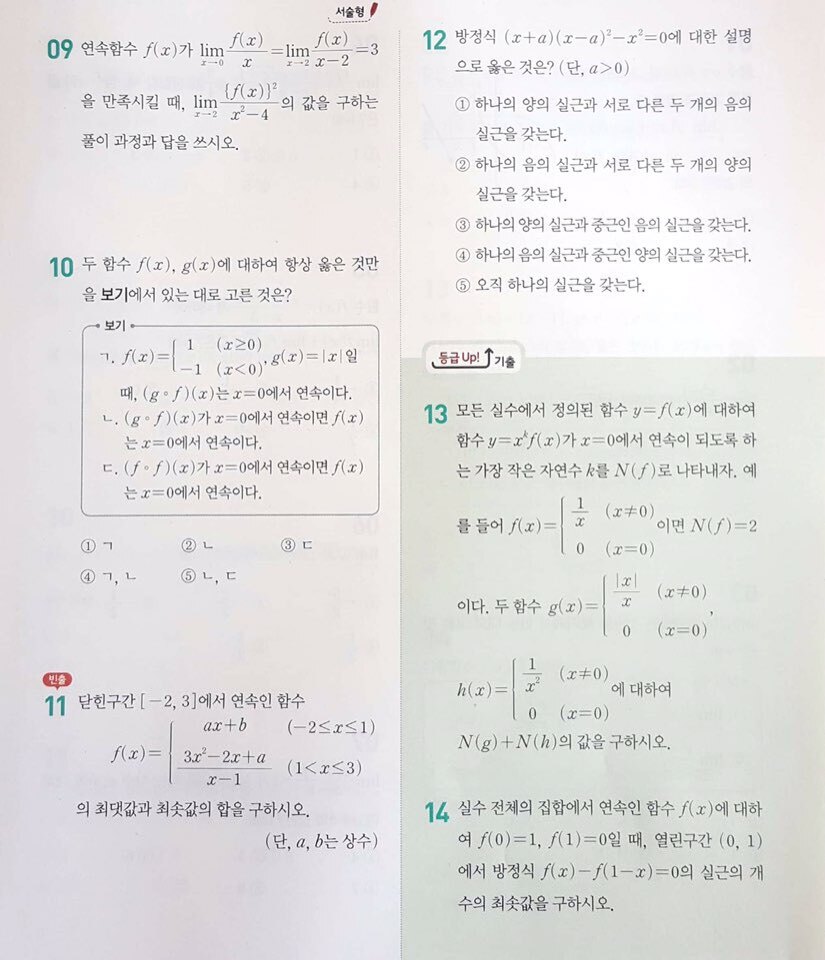 서술형
09 연속함수 f(x)가 lim_{x→0} f(x)/x = lim_{x→2} f(x)/(x-2) = 3
을 만족시킬 때, lim_{x→2} {f(x)}²/(x²-4) 의 값을 구하는
풀이 과정과 답을 쓰시오.
10 두 함수 f(x), g(x)에 대하여 항상 옳은 것만
을 보기에서 있는 대로 고른 것은?
보기
ㄱ. f(x)={ 1 (x≥0)
-1 (x<0), g(x)=|x|일
때, (g∘f)(x)는 x=0에서 연속이다.
ㄴ. (g∘f)(x)가 x=0에서 연속이면 f(x)
는 x=0에서 연속이다.
ㄷ. (f∘f)(x)가 x=0에서 연속이면 f(x)
는 x=0에서 연속이다.
① ㄱ ② ㄴ ③ ㄷ
④ ㄱ, ㄴ ⑤ ㄴ, ㄷ
빈출
11 닫힌구간 [-2, 3]에서 연속인 함수
f(x)={ ax+b (-2≤x≤1)
(3x²-2x+a)/(x-1) (1<x≤3)
의 최댓값과 최솟값의 합을 구하시오.
(단, a, b는 상수)
12 방정식 (x+a)(x-a)²-x²=0에 대한 설명
으로 옳은 것은? (단, a>0)
① 하나의 양의 실근과 서로 다른 두 개의 음의
실근을 갖는다.
② 하나의 음의 실근과 서로 다른 두 개의 양의
실근을 갖는다.
③ 하나의 양의 실근과 중근인 음의 실근을 갖는다.
④ 하나의 음의 실근과 중근인 양의 실근을 갖는다.
⑤ 오직 하나의 실근을 갖는다.
등급 Up! 기출
13 모든 실수에서 정의된 함수 y=f(x)에 대하여
함수 y=x^k f(x)가 x=0에서 연속이 되도록 하
는 가장 작은 자연수 k를 N(f)로 나타내자. 예
를 들어 f(x)={ 1/x (x≠0)
0 (x=0) 이면 N(f)=2
이다. 두 함수 g(x)={ |x|/x (x≠0)
0 (x=0),
h(x)={ 1/x² (x≠0)
0 (x=0) 에 대하여
N(g)+N(h)의 값을 구하시오.
14 실수 전체의 집합에서 연속인 함수 f(x)에 대하
여 f(0)=1, f(1)=0일 때, 열린구간 (0, 1)
에서 방정식 f(x)-f(1-x)=0의 실근의 개
수의 최솟값을 구하시오.